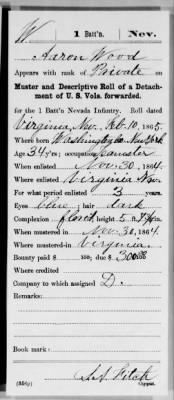 W 1 Batt'n. Nev.
Aaron Wood
Appears with rank of Private on
Muster and Descriptive Roll of a Detach-
ment of U. S. Vols. forwarded.
for the 1 Batt'n Nevada Infantry. Roll dated
Virginia, Nev. Feb. 10, 1865.
Where born Washington Co. New York
Age 34 y'rs; occupation Teamster
When enlisted Nov. 30, 1864.
Where enlisted Virginia Nev.
For what period enlisted 3 years.
Eyes blue; hair dark
Complexion florid; height 5 ft. in.
When mustered in Nov. 30, 1864.
Where mustered-in Virginia.
Bounty paid $ 100; due $ 300
Where credited
Company to which assigned D.
Remarks:
Book mark:
Fitch
Copyist.